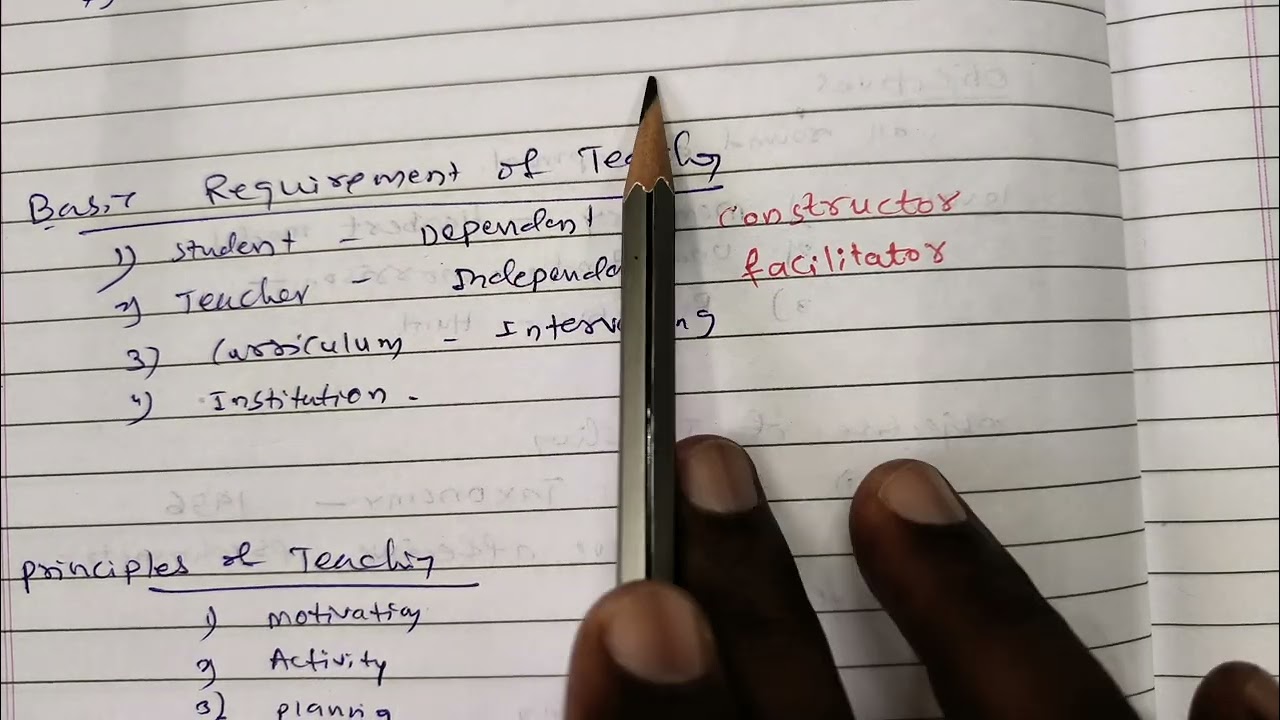 Basic Requirement of Teaching
1) Student - Dependent constructor
2) Teacher - Independe facilitator
3) Curriculum - Intervening
4) Institution -
principles of Teaching
1) motivation
2) Activity
3) planning